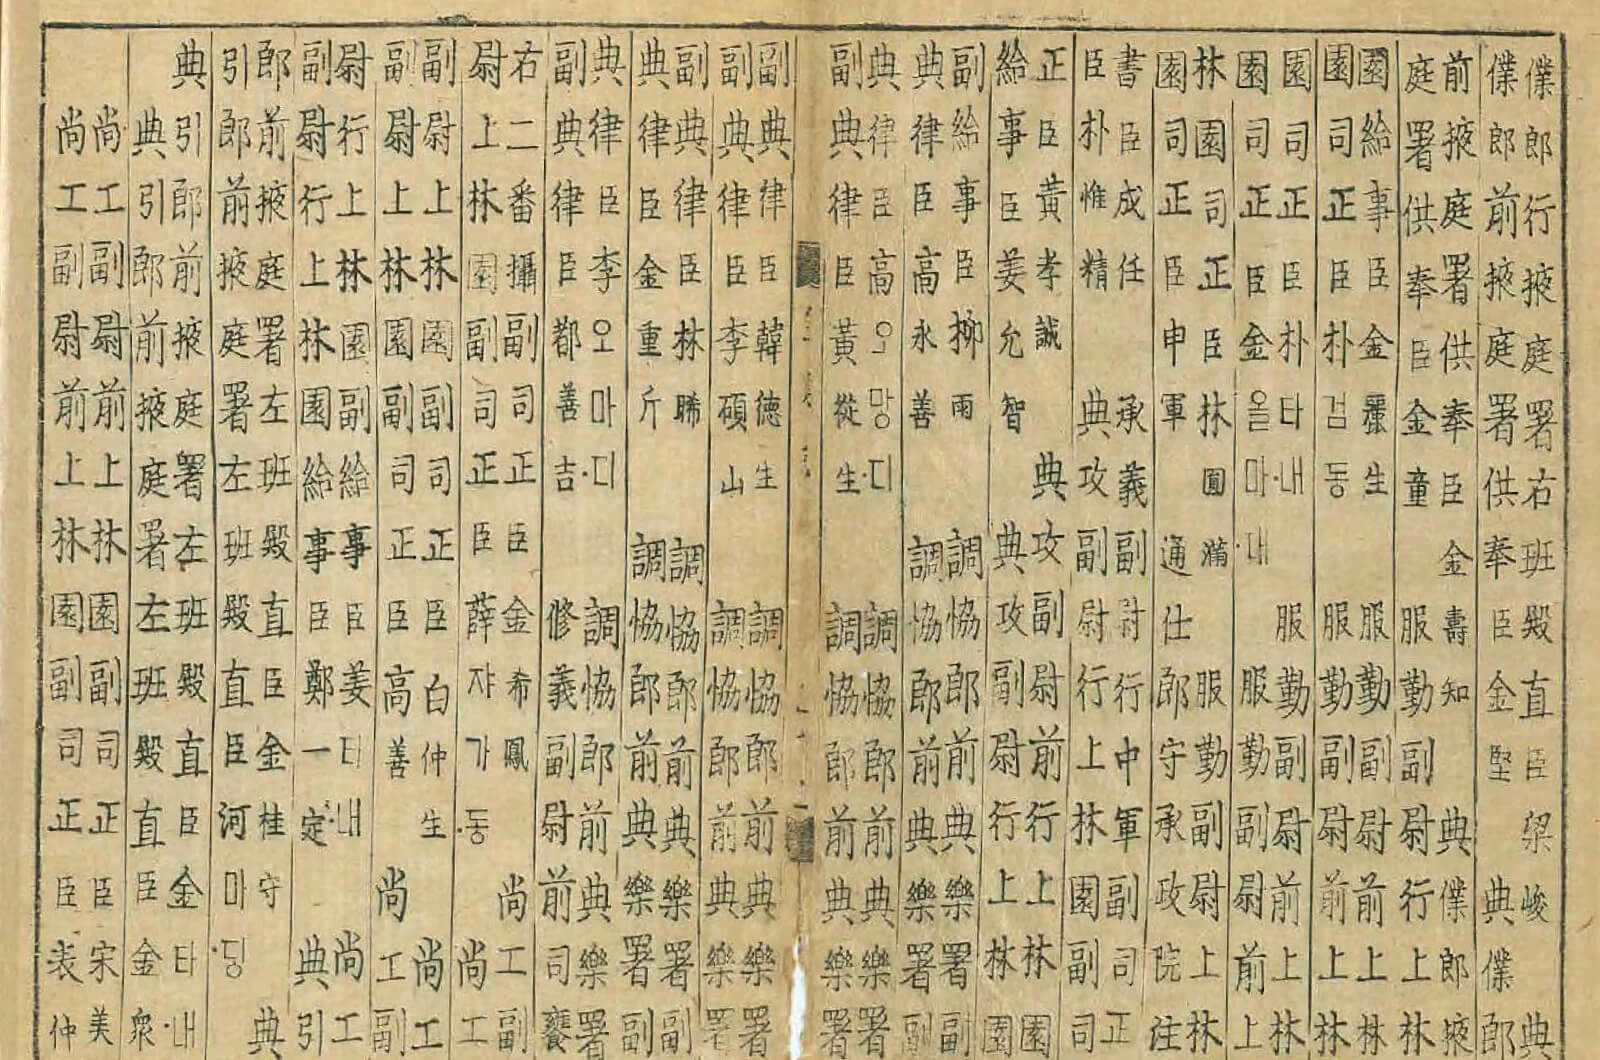 僕郎行掖庭署右班殿直臣梁峻 典
僕郎前掖庭署供奉臣金堅 典僕郎
前掖庭署供奉臣金壽知 典僕郎掖
庭署供奉臣金童 服勤副尉行上林
園給事臣金麗生 服勤副尉前上林
園司正臣朴검동 服勤副尉前上林
園司正臣朴타·내 服勤副尉前上林
園司正臣金올마·대 服勤副尉前上
林園司正臣林圓滿 服勤副尉上林
園司正臣申軍 通仕郎守承政院注
書臣成任 承義副尉行中軍副司正
臣朴惟精 典攻副尉行上林園副司
正臣黃孝誠 典攻副尉前行上林園
給事臣姜允智 典攻副尉行上林園
副給事臣柳雨 調協郎前典樂署副
典律臣高永善 調協郎前典樂署副
典律臣高오망·디 調協郎前典樂署
副典律臣黃從生 調協郎前典樂署
副典律臣韓德生 調協郎前典樂署
副典律臣李碩山 調協郎前典樂署
副典律臣林晞 調協郎前典樂署副
典律臣金重斤 調協郎前典樂署副
典律臣李오마·디 調協郎前典樂署
副典律臣都善吉 修義副尉前司饔
右二番攝副司正臣金希鳳 尚工副
尉上林園副司正臣薛쟈가·동 尚工
副尉上林園副司正臣白仲生 尚工
副尉上林園副司正臣高善 尚工副
尉行上林園副給事臣姜타·내 尚工
副尉行上林園給事臣鄭一定 典引
郎前掖庭署左班殿直臣金桂守 典
引郎前掖庭署左班殿直臣河마·딩
典引郎前掖庭署左班殿直臣金타·내
典引郎前掖庭署左班殿直臣金衆
尚工副尉前上林園副司正臣宋美
尚工副尉前上林園副司正臣裵仲